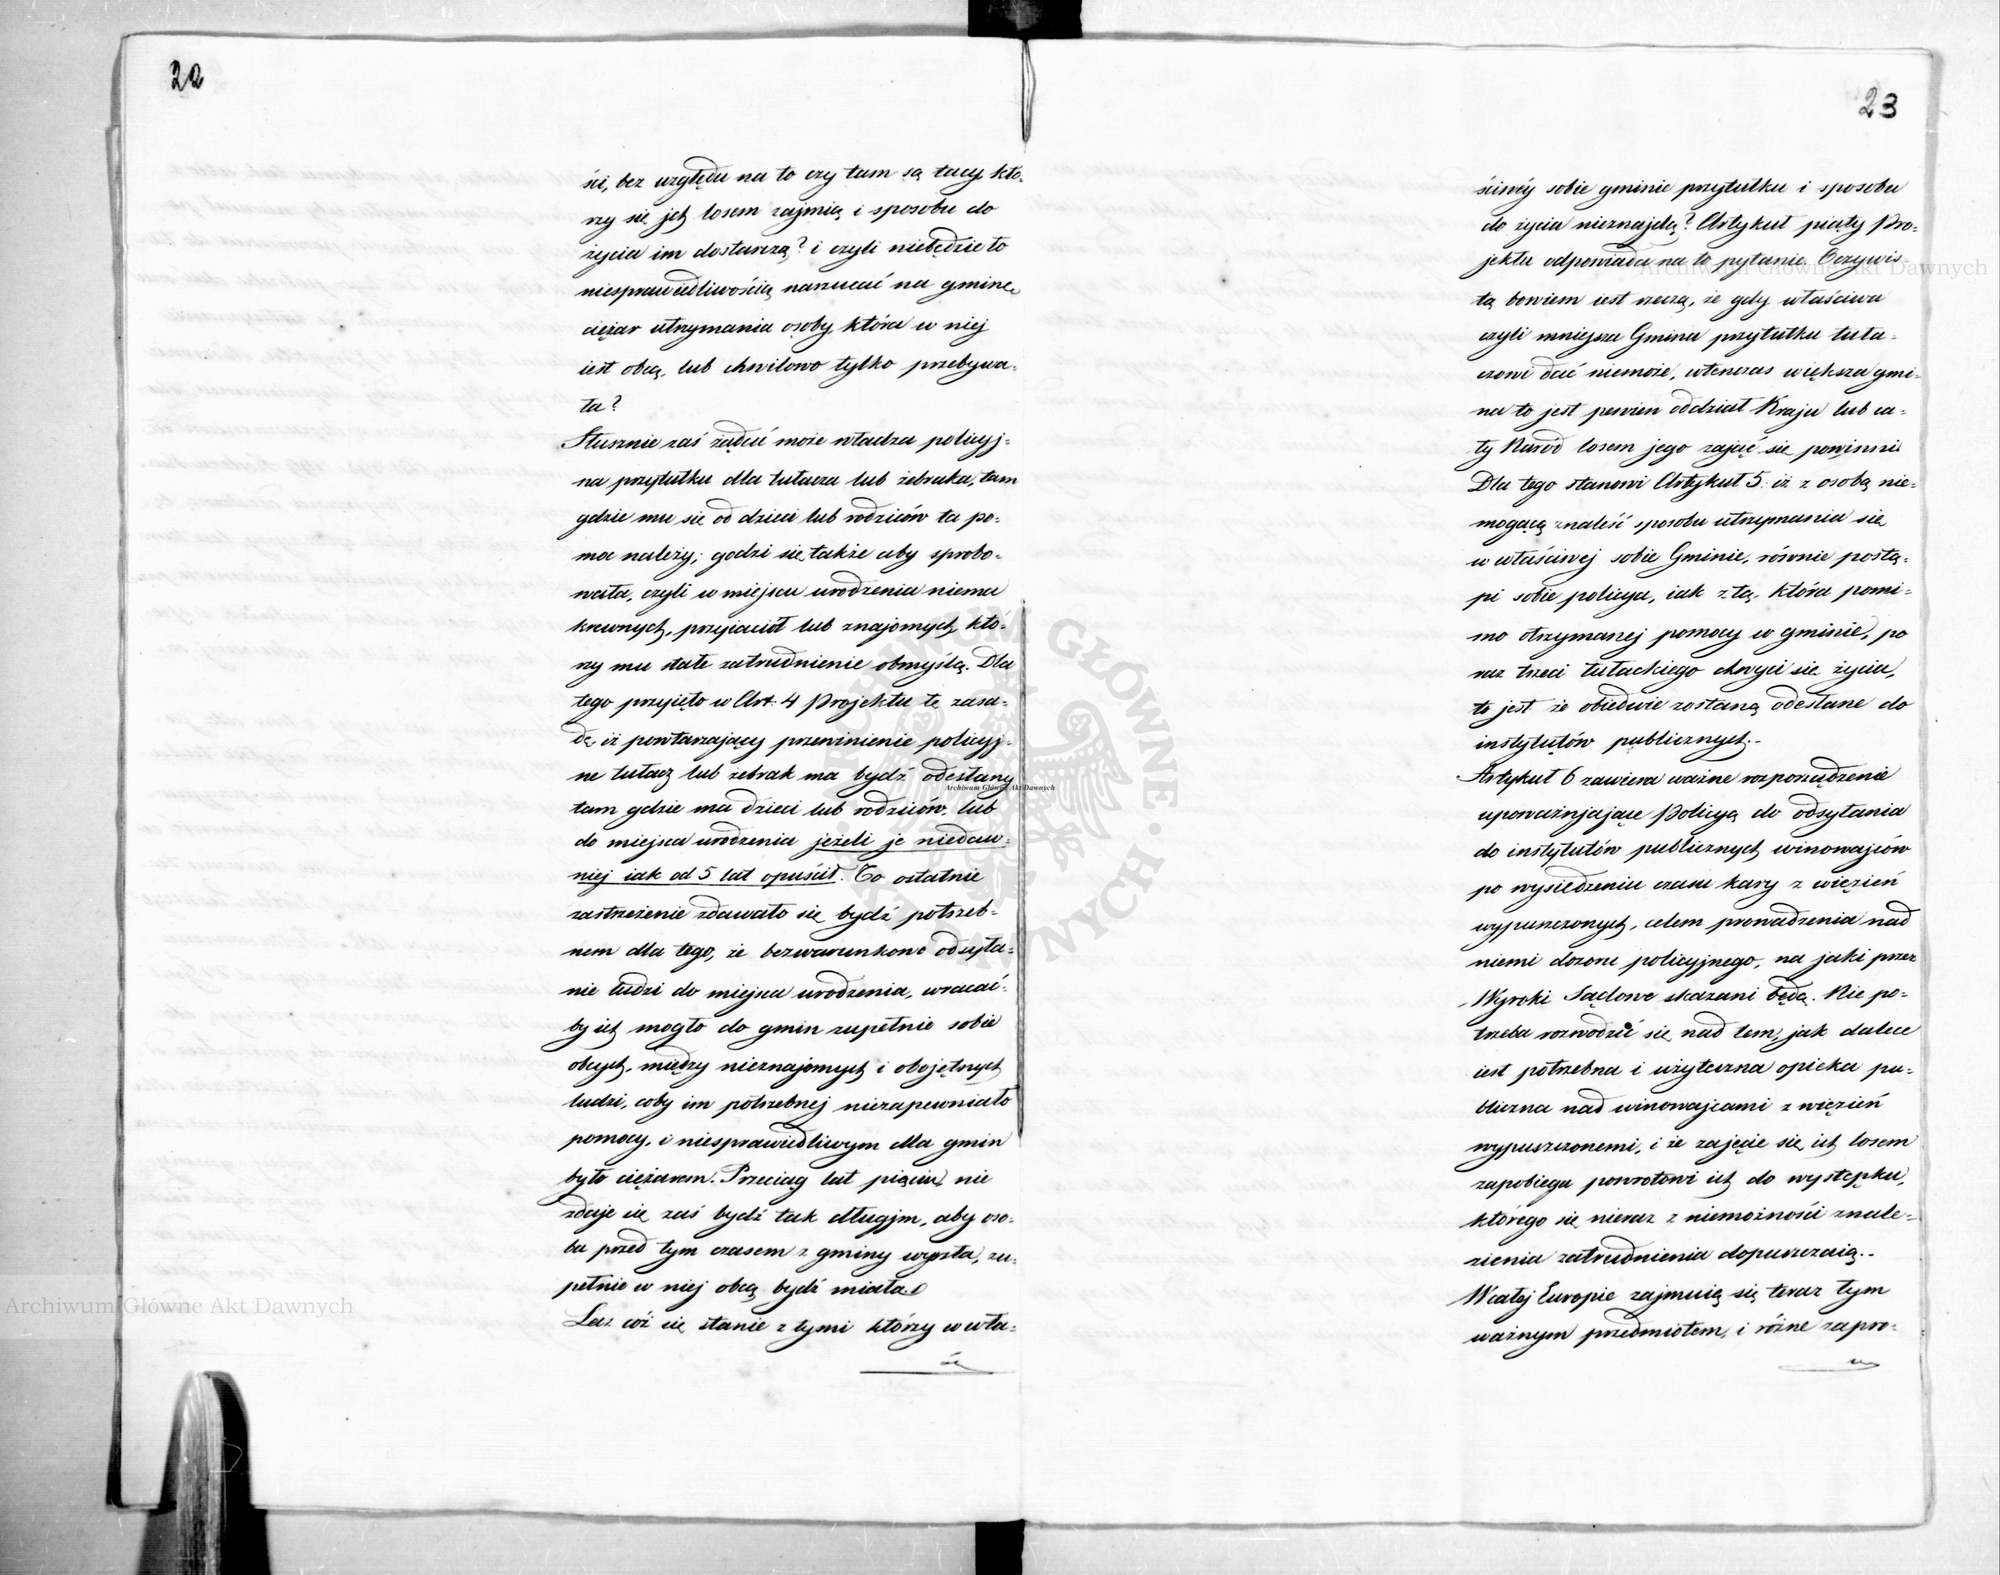 22
ści, bez względu na to czy tam są tacy, któ-
rzy się ich losem zajmią i sposobu do
życia im dostarczą? i czyli niebędzie to
niesprawiedliwością narzucać na gminę
ciężar utrzymania osoby, która w niej
iest obcą, lub chwilowo tylko przebywa-
ła?
Słusznie zaś żądać może władza policyj-
na przytułku dla tułacza lub żebraka, tam
gdzie mu się od dzieci lub rodziców ta po-
moc należy; godzi się także aby sprobo-
wała, czyli w miejscu urodzenia niema
krewnych, przyiaciół lub znajomych, któ-
rzy mu stałe zatrudnienie obmyślą. Dla
tego przyięto w Art: 4 Projektu tę zasa-
dę iż powtarzający przewinienie policyj-
ne tułacz lub żebrak ma bydź odesłany
tam gdzie ma dzieci lub rodziców, lub
do miejsca urodzenia jeżeli je niedaw-
niej iak od 5 lat opuścił. To ostatnie
zastrzeżenie zdawało się bydź potrzeb-
nem dla tego, że bezwarunkowe odsyła-
nie ludzi do miejsca urodzenia, wracać-
by ich mogło do gmin zupełnie sobie
obcych, między nieznajomych i obojętnych
ludzi, coby im potrzebnej niezapewniało
pomocy, i niesprawiedliwym dla gmin
było ciężarem. Przeciąg lat pięciu, nie
zdaje się zaś bydź tak długim, aby oso-
ba przed tym czasem z gminy wyszła, zu-
pełnie w niej obcą bydź miała.
Lecz cóż się stanie z tymi którzy w wła-
ści
23
ściwéy sobie gminie przytułku i sposobu
do życia nieznajdą? Artykuł piąty Pro-
jektu odpowiada na to pytanie. Oczywis-
tą bowiem iest rzeczą, że gdy właściwa
czyli mniejsza Gmina przytułku tuła-
czowi dać niemoże, wtenczas większa gmi-
na to jest pewien oddział Kraju lub ca-
ły Naród losem jego zająć się powinni.
Dla tego stanowi Artykuł 5. iż z osobą nie-
mogącą znaleść sposobu utrzymania się
w właściwej sobie Gminie, równie postą-
pi sobie policya, iak z tą, która pomi-
mo otrzymanej pomocy w gminie, po
raz trzeci tułackiego chwyci się życia,
to jest że obiedwie zostaną odesłane do
instytutów publicznych.-
Artykuł 6 zawiera ważne rozporządzenie
upoważniające Policyą do odsyłania
do instytutów publicznych winowajców
po wysiedzeniu czasu kary z więzień
wypuszczonych, celem prowadzenia nad
niemi dozoru policyjnego, na jaki przez
Wyroki Sądowe skazani będą. Nie po-
trzeba rozwodzić się nad tem, jak dalece
iest potrzebna i użyteczna opieka pu-
bliczna nad winowajcami z więzień
wypuszczonemi, i że zajęcie się ich losem
zapobiega powrotowi ich do występku,
którego się nieraz z niemożności znale-
zienia zatrudnienia dopuszczaią.-
W całej Europie zajmuią się teraz tym
ważnym przedmiotem, i różne zapro-
Archiwum Główne Akt Dawnych
Archiwum Główne Akt Dawnych
Archiwum Główne Akt Dawnych